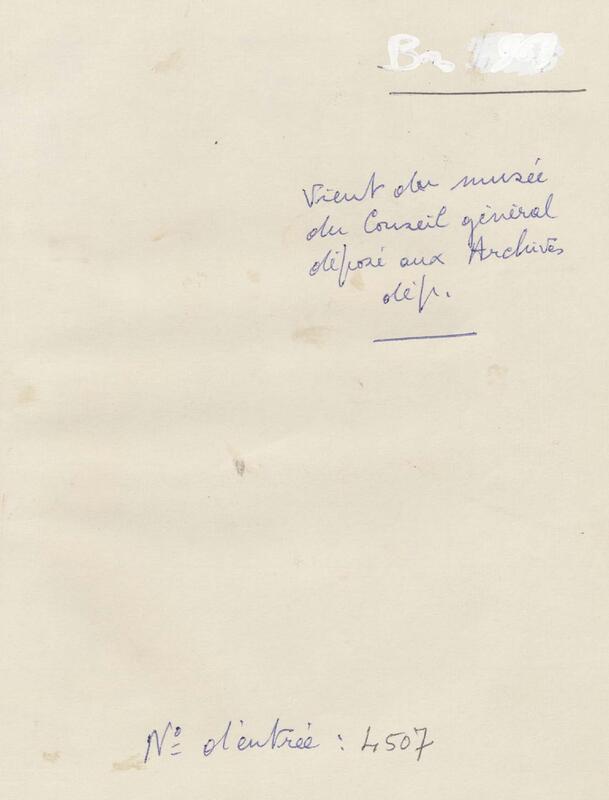 Vient du musée
du Conseil général
déposé aux Archives
dép.
N° d'entrée : 4507